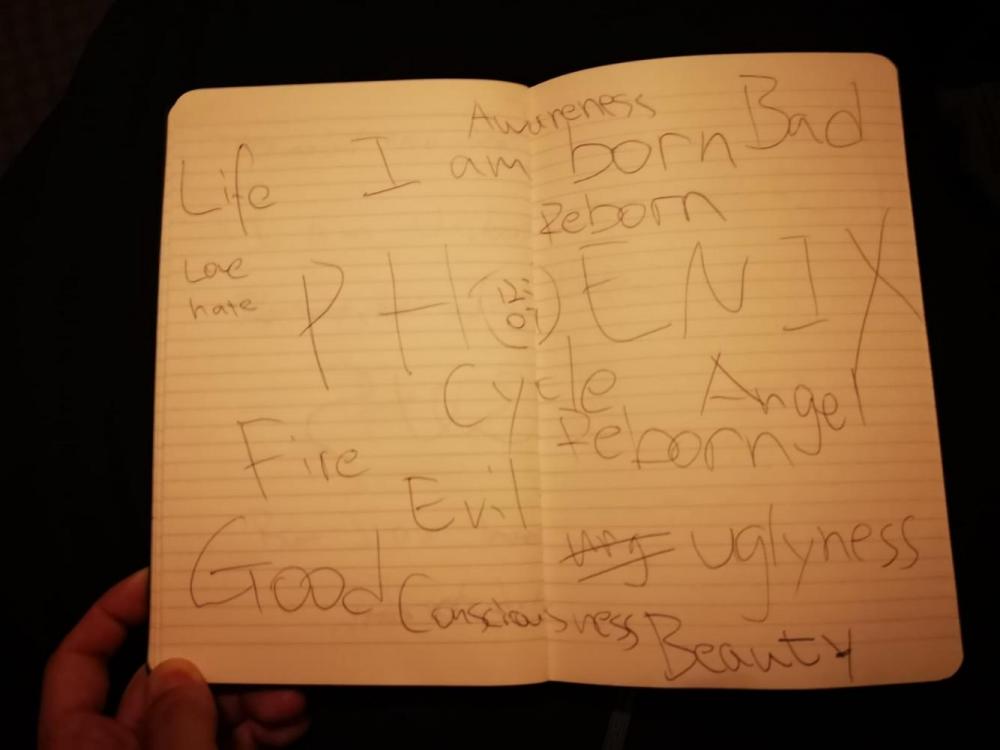 Awareness
Life I am born Bad
Reborn
Love
hate
PH 12:07 ENIX
Cycle Angel
Fire Reborn
Evil
Good uglyness
Consciousness
Beauty